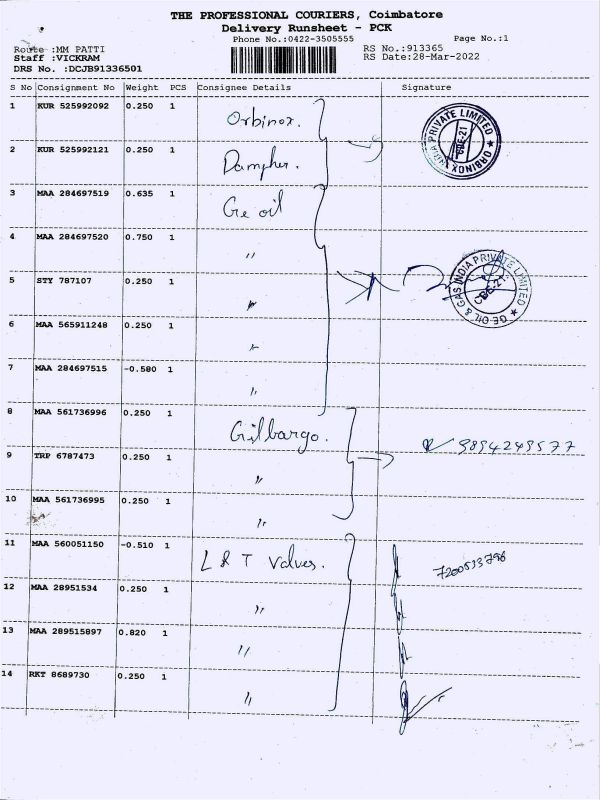 THE PROFESSIONAL COURIERS, Coimbatore
Delivery Runsheet - PCK
Phone No.:0422-3505555
Page No.:1
Route :MM PATTI
RS No.:913365
Staff :VICKRAM
RS Date:28-Mar-2022
DRS No. :DCJB91336501
S No Consignment No Weight PCS Consignee Details Signature
1 KUR 525992092 0.250 1 Orbinox.
INDIA PRIVATE LIMITED ★ ORBINOX
2 KUR 525992121 0.250 1
3 MAA 284697519 0.635 1 Ge oil
4 MAA 284697520 0.750 1 "
GE OIL & GAS INDIA PRIVATE LIMITED ★
CBE-21
5 STY 787107 0.250 1 "
6 MAA 565911248 0.250 1 "
7 MAA 284697515 -0.580 1 "
8 MAA 561736996 0.250 1 Gilbargo.
9894249577
9 TRP 6787473 0.250 1 "
10 MAA 561736995 0.250 1 "
11 MAA 560051150 -0.510 1 L & T Valves.
7200513796
12 MAA 28951534 0.250 1 "
13 MAA 289515897 0.820 1 "
14 RKT 8689730 0.250 1 "